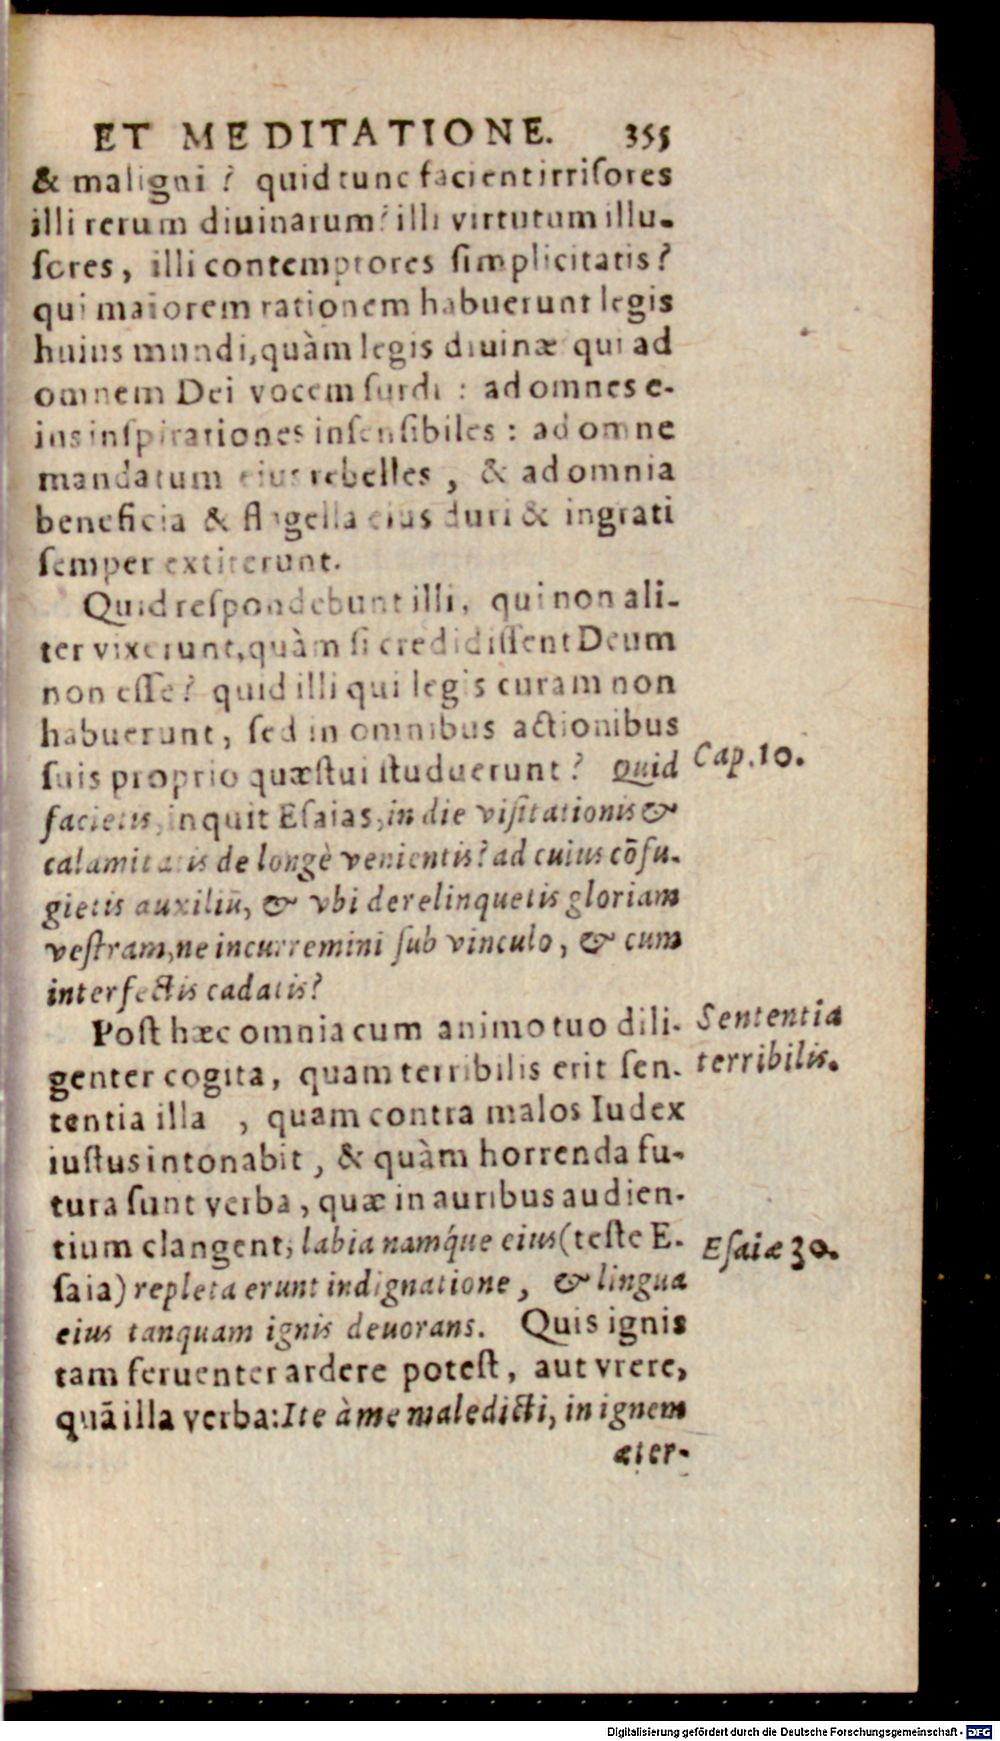 ET MEDITATIONE. 355
& maligni ? quid tunc facient irriſores
illi rerum diuinarum? illi virtutum illu-
ſores, illi contemptores ſimplicitatis?
qui maiorem rationem habuerunt legis
huius mundi, quàm legis diuinæ qui ad
omnem Dei vocem ſurdi : ad omnes e-
ius inſpirationes inſenſibiles : ad omne
mandatum eius rebelles , & ad omnia
beneficia & flagella eius duri & ingrati
ſemper extiterunt.
Quid reſpondebunt illi, qui non ali-
ter vixerunt, quàm ſi credidiſſent Deum
non eſſe? quid illi qui legis curam non
habuerunt, ſed in omnibus actionibus
ſuis proprio quæſtui ſtuduerunt? Quid
facietis, inquit Eſaias, in die viſitationis &
calamitatis de longè venientis? ad cuius cõfu-
gietis auxiliũ, & vbi derelinquetis gloriam
veſtram, ne incurremini ſub vinculo, & cum
interfectis cadatis?
Cap. 10.
Poſt hæc omnia cum animo tuo dili-
genter cogita, quam terribilis erit ſen-
tentia illa , quam contra malos Iudex
iuſtus intonabit, & quàm horrenda fu-
tura ſunt verba, quæ in auribus audien-
tium clangent; labia namq́ue eius (teſte E-
ſaia) repleta erunt indignatione, & lingua
eius tanquam ignis deuorans. Quis ignis
tam feruenter ardere poteſt, aut vrere,
quã illa verba: Ite à me maledicti, in ignem
æter-
Sententia
terribilis.
Eſaiæ 30.
Digitalisierung gefördert durch die Deutsche Forschungsgemeinschaft - DFG